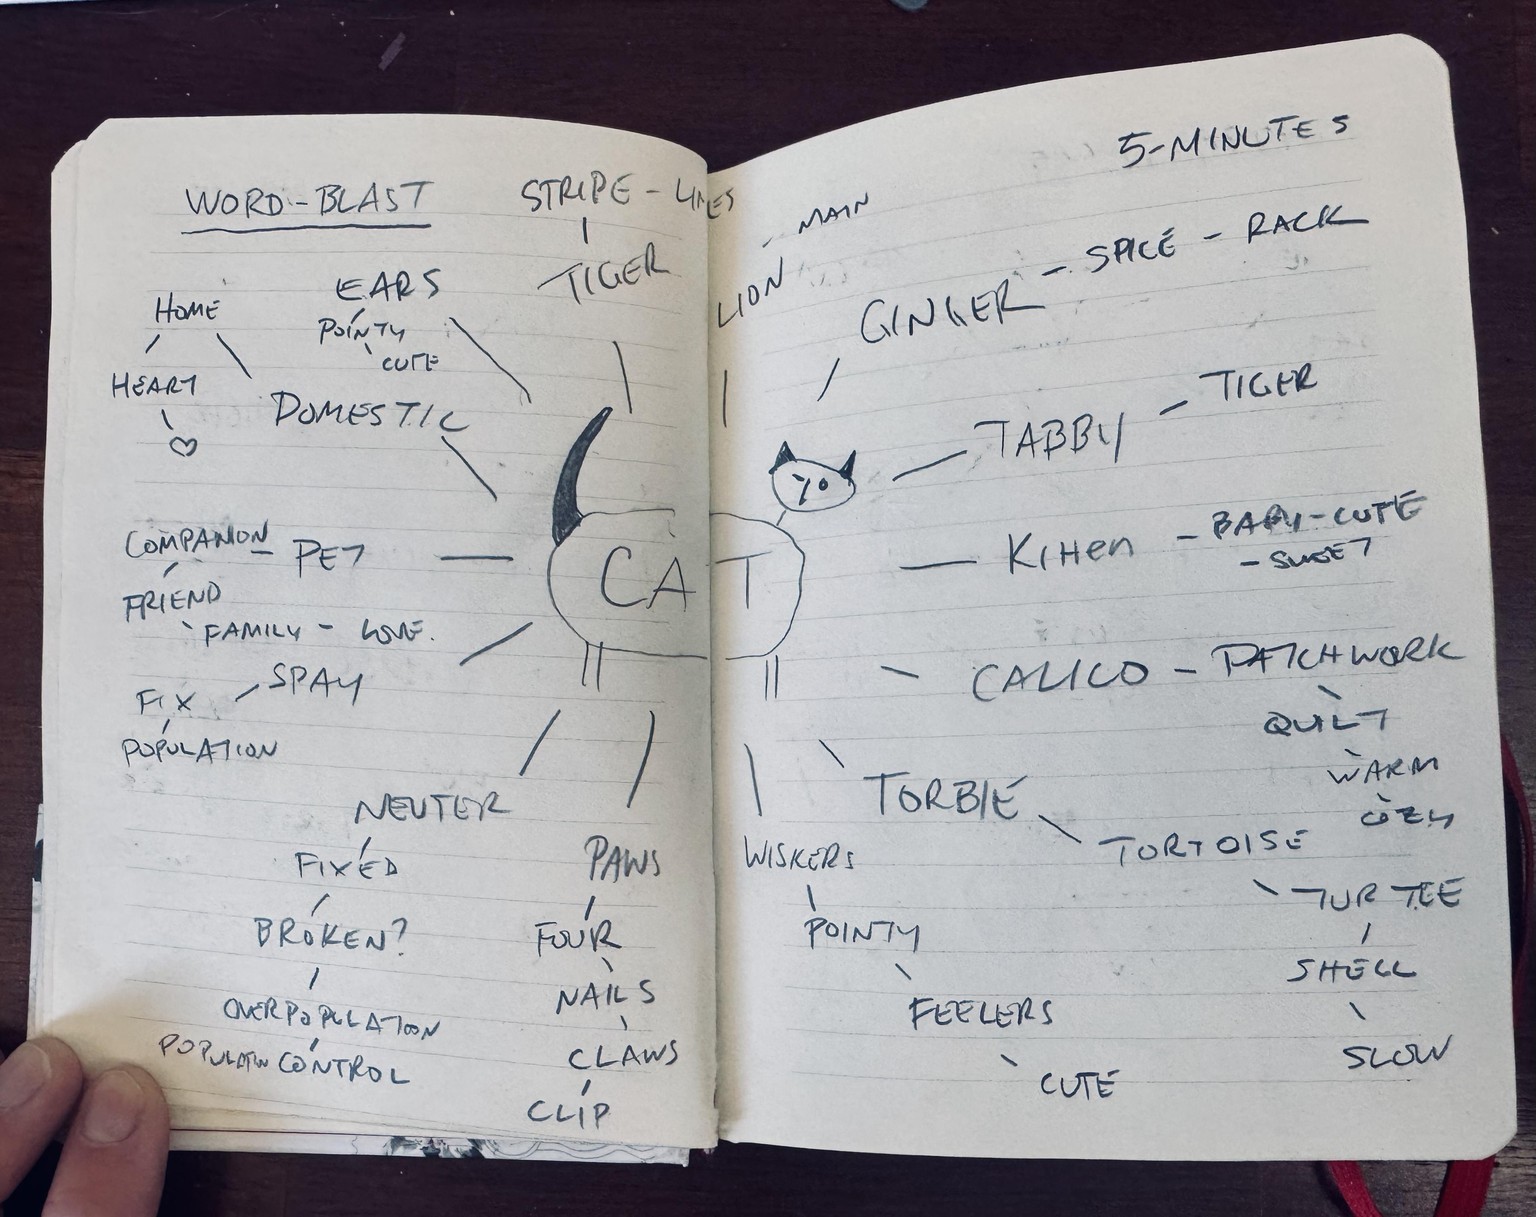 WORD-BLAST
STRIPE - LINES
TIGER
EARS
POINTY
CUTE
HOME
HEART
DOMESTIC
COMPANION - PET
FRIEND
FAMILY - LOVE.
SPAY
FIX
POPULATION
NEUTER
FIXED
BROKEN?
OVERPOPULATION
POPULATION CONTROL
PAWS
FOUR
NAILS
CLAWS
CLIP
CAT
5-MINUTES
LION - MAIN
GINGER - SPICE - RACK
TABBY - TIGER
KITTEN - BABY-CUTE
- SWEET
CALICO - PATCHWORK
QUILT
WARM
COZY
TORBIE
TORTOISE
TURTLE
SHELL
SLOW
WISKERS
POINTY
FEELERS
CUTE